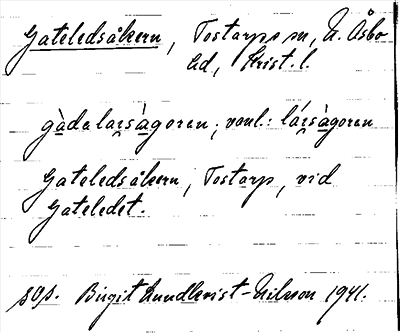 Gateledsåkern, Tostarps sn, N. Åsbo
hd, Krist. l.
gàdalarsàgoren; vanl.: lársàgoren
Gateledsåkern, Tostarp, vid
Gateledet.
sop. Birgit Lundkvist-Nilsson 1941.